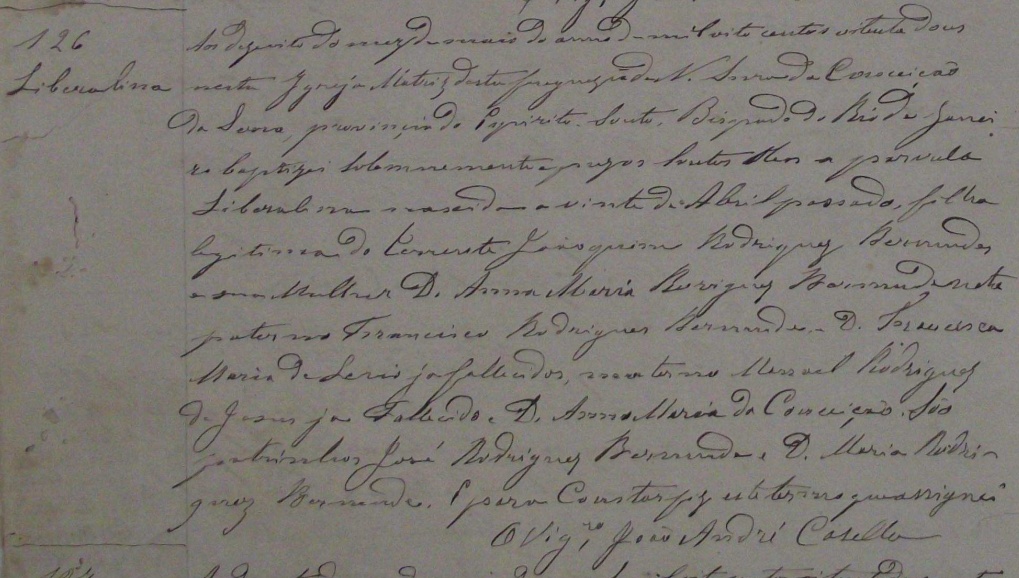 126
Liberalina
Aos dezoito do mez de maio do anno de mil oito centos oitenta dous
nesta Igreja Matriz desta freguezia de N. Senra da Conceição
da Serra, provincia do Espirito Santo, Bispado do Rio de Janei
ro baptizei solemnemente e puz os Santos Oleos a parvula
Liberalina nascida a vinte de Abril passado, filha
legitima do Tenente Joaoquim Rodrigues Bermudes
e sua Mulher D. Anna Maria Rorigues Bermude neta
paterno Francisco Rodrigues Bermude e D. Francisca
Maria de ja fallecidos, materno Manoel Rodrigues
de Jesus ja Fallecido e D. Anna Maria da Conceição. São
padrinhos José Rodrigues Bermude e D. Maria Rodri-
gues Bermude. E para Constar fiz este termo que assignei
O Vigro João André Casella